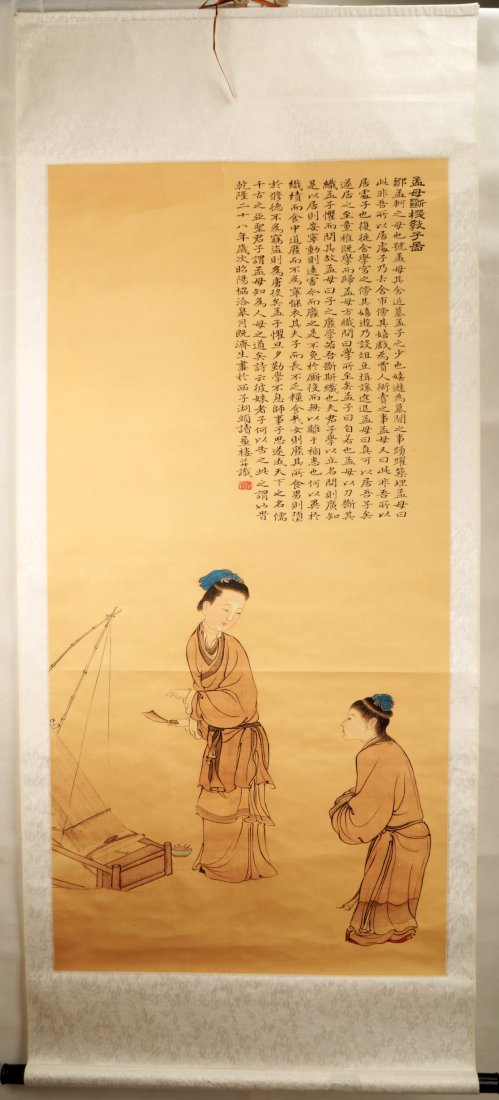 孟母斷機教子啚
鄒孟軻之母也號孟母其舍近墓孟子之少也嬉遊為墓間之事踴躍築埋孟母曰
此非吾所以居處子乃去舍市傍其嬉戲為賈人衒賣之事孟母又曰此非吾所以
居處子也復徙舍學宮之傍其嬉遊乃設俎豆揖讓進退孟母曰真可以居吾子矣
遂居之至童稚既學而歸孟母方織問曰學所至矣孟子曰自若也孟母以刀斷其
織孟子懼而問其故孟母曰子之廢學若吾斷斯織也夫君子學以立名問則廣知
是以居則安寧動則遠害今而廢之是不免於厮役而無以離于禍患也何以異於
織績而食中道廢而不為寧能衣其夫子而長不乏糧食哉女則廢其所食男則墮
於脩德不為竊盜則為虜役矣孟子懼旦夕勤學不息師事子思遂成天下之名儒
千古之亞聖君子謂孟母知為人母之道矣詩云彼姝者子何以告之此之謂也 時
乾隆二十八年歲次昭陽協洽皋月既濟生畫於西子湖頭詩 樓并識